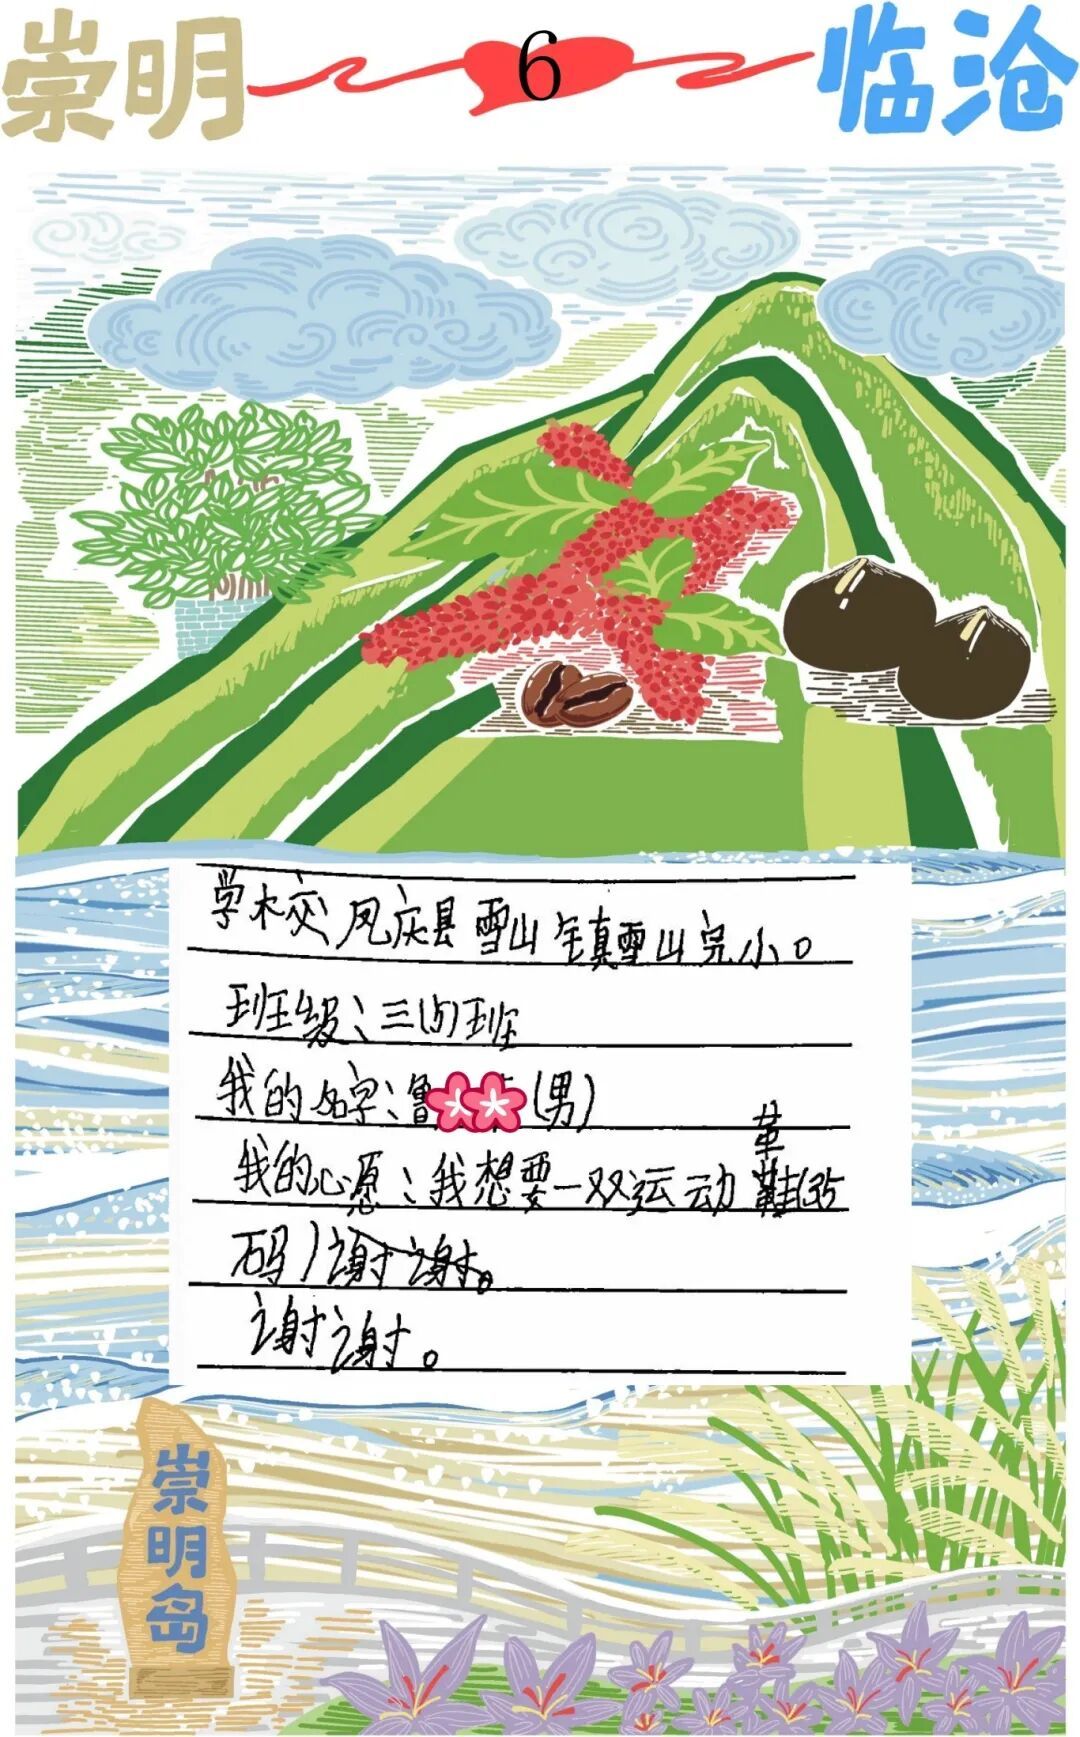 崇明 6 临沧
学校：凤庆县雪山镇雪山完小。
班级：三(5)班
我的名字：鲁 (男)
我的心愿：我想要一双运动鞋(35
码)谢谢。
谢谢。
崇明岛